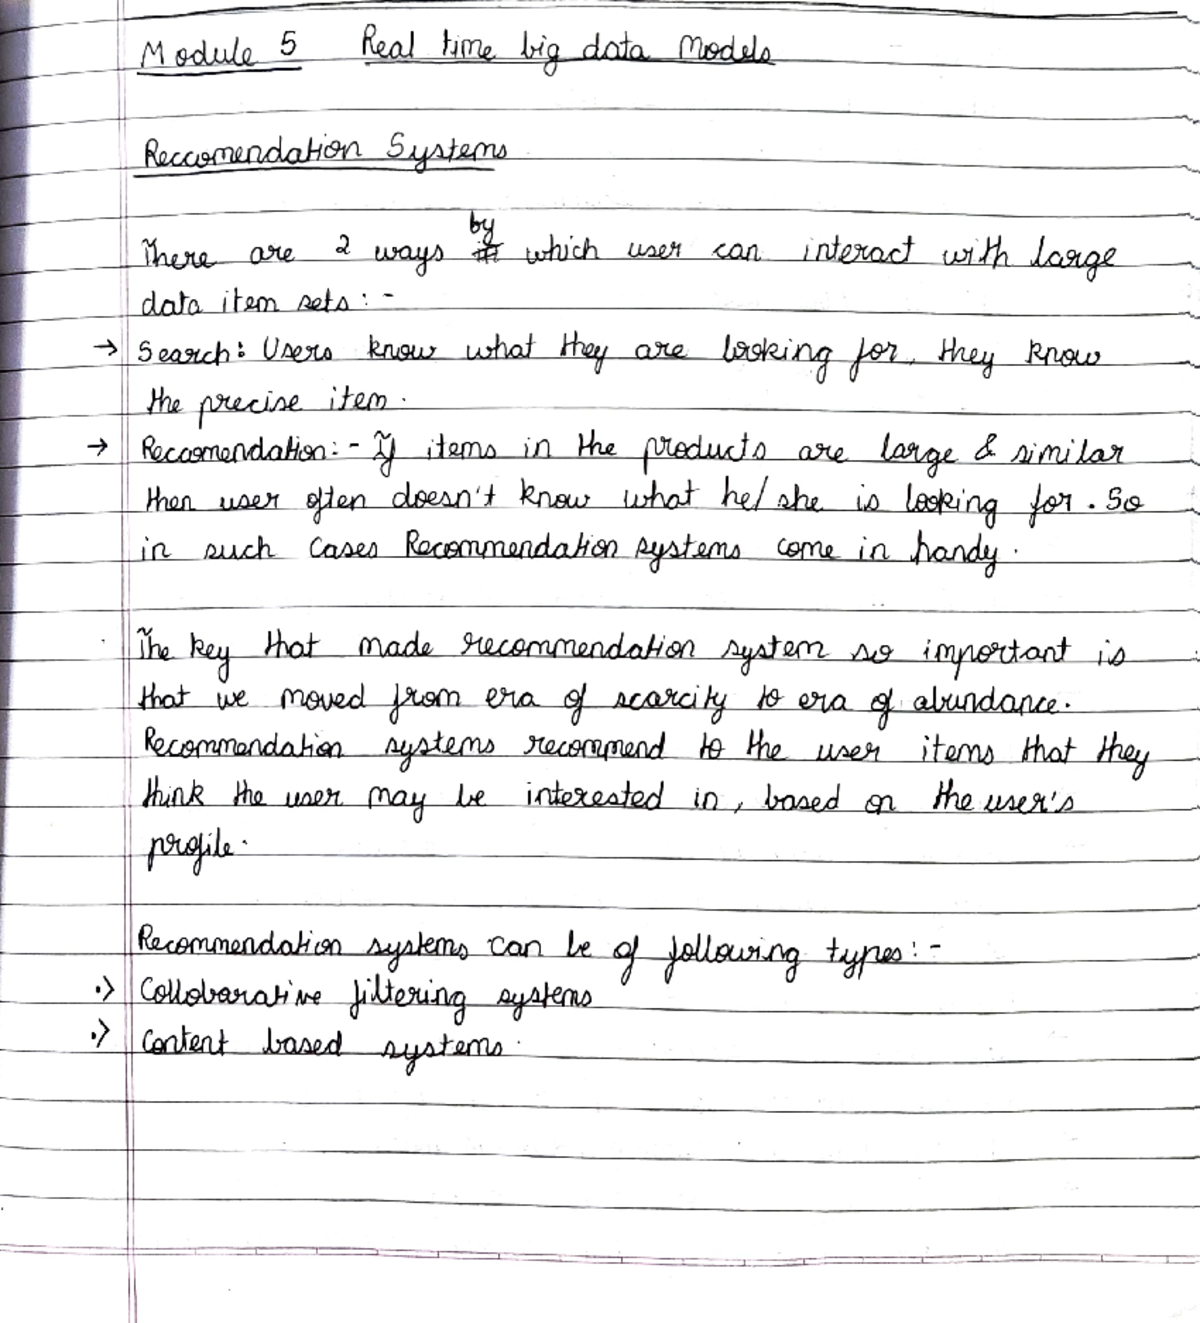 Module 5 Real time big data Models
Reccomendation Systems
by
There are 2 ways which user can interact with large
data item sets:-
→ Search: Users know what they are looking for, they know
the precise item.
→ Reccomendation:- If items in the products are large & similar
then user often doesn't know what he/she is looking for. So
in such cases Recommendation systems come in handy.
The key that made recommendation system so important is
that we moved from era of scarcity to era of abundance.
Recommendation systems recommend to the user items that they
think the user may be interested in, based on the user's
profile.
Recommendation systems can be of following types:-
.> Colloborative filtering systems
.> Content based systems.